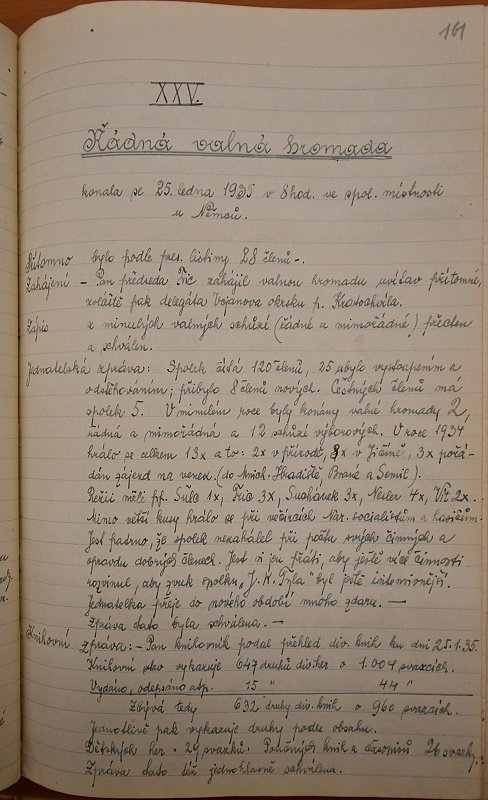 161
XXV.
Řádná valná hromada
konala se 25. ledna 1935 v 8 hod. ve spol. místnosti
u Němců.
Přítomno bylo podle pres. listiny 28 členů -.
Zahájení - Pan předseda Fric zahájil valnou hromadu uvítav přítomné,
zvláště pak delegáta Vojanova okrsku p. Kratochvíla.
Zápis z minulých valných schůzí (řádné a mimořádné) přečten
a schválen.
Jednatelská zpráva: Spolek čítá 120 členů, 25 ubylo vystoupením a
odstěhováním; přibylo 8 členů nových. Čestných členů má
spolek 5. V minulém roce byly konány valné hromady 2,
řádná a mimořádná a 12 schůzí výborových. V roce 1934
hrálo se celkem 13x a to: 2x v přírodě, 8x v Jičíně, 3x pořá-
dán zájezd na venek. (do Mnich. Hradiště Brané a Semil).
Režii měli pp. Šulc 1x, Fric 3x, Suchánek 3x, Nesler 4x, Vít 2x.
Mimo větší kusy hrálo se při večírcích Nár. socialistům a hasičům.
Jest patrno, že spolek nezahálel při počtu svých činných a
opravdu dobrých členech. Jest si jen přáti, aby ještě více činnosti
rozvinul, aby zvuk spolku "J. K. Tyla" byl ještě intensivnější.
Jednatelka přeje do nového období mnoho zdaru. —
Zpráva tato byla schválena. —
Knihovní zpráva: - Pan knihovník podal přehled div. knih ku dni 25.1.35.
Knihovní stav vykazuje 647 druhů div. her o 1.004 svazcích.
Vydáno, odepsáno atp. 15 " 44 "
Zbývá tedy 632 druhy div. knih o 960 svazcích.
Jednotlivě pak vykazuje druhy podle obsahu.
Dětských her - 29 svazků. Poučných knih a časopisů 26 svazky.
Zpráva tato též jednohlasně schválena.